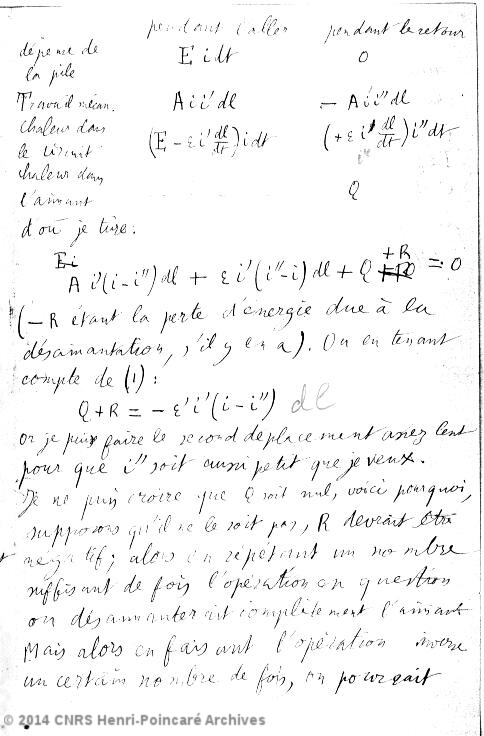 pendant l'aller pendant le retour
dépense de la pile E i dt 0
Travail mécan. A i i' dl – A i' i'' dl
chaleur dans le circuit (E – ε i' dl/dt) i dt (+ ε i' dl/dt) i'' dt
chaleur dans l'aimant Q
d'où je tire :
A i' (i – i'') dl + ε i' (i'' – i) dl + Q + R = 0
(– R étant la perte d'énergie due à la
désaimantation, s'il y en a). Ou en tenant
compte de (1) :
Q + R = – ε' i' (i – i'') dl
or je puis faire le second déplacement assez lent
pour que i'' soit aussi petit que je veux.
Je ne puis croire que Q soit nul, voici pourquoi,
supposons qu'il ne le soit pas, R devrait être
négatif ; alors en répétant un nombre
suffisant de fois l'opération en question
on désaimanterait complètement l'aimant
Mais alors en faisant l'opération inverse
un certain nombre de fois, on pourrait
© 2014 CNRS Henri-Poincaré Archives